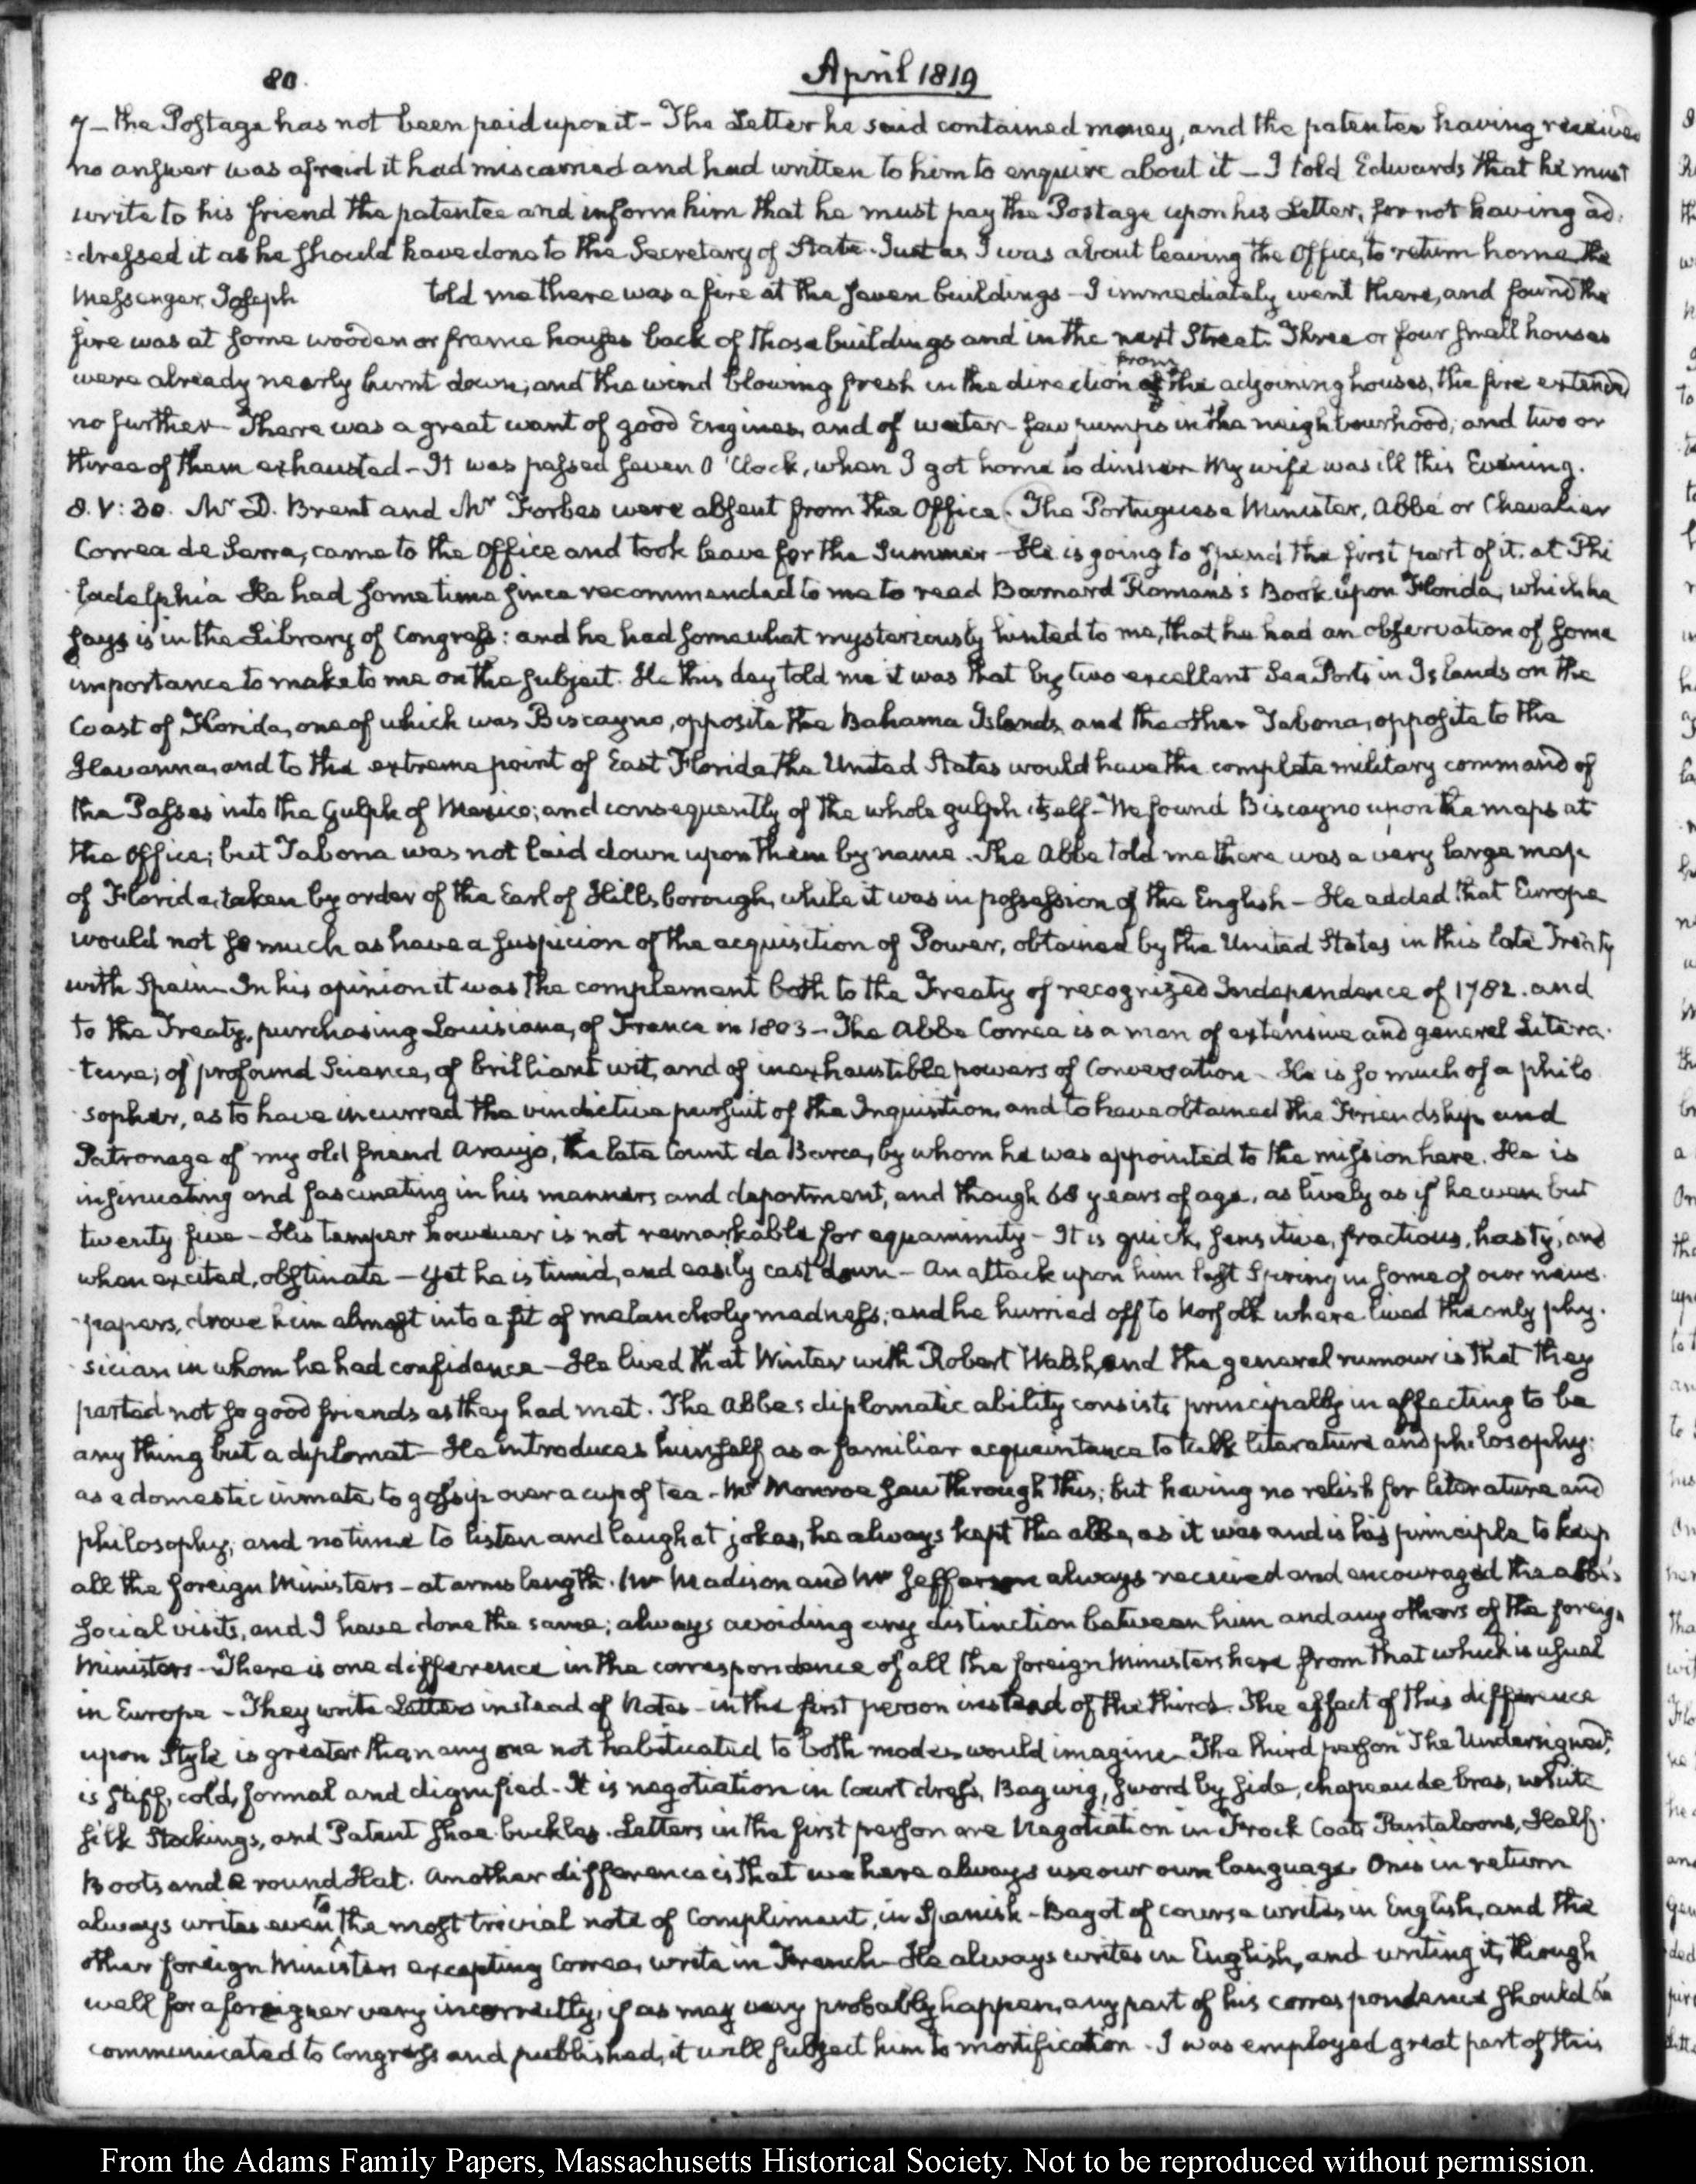 80.
April 1819
7 — the Postage has not been paid upon it — The Letter he said contained money, and the patentee having received
no answer was afraid it had miscarried and had written to him to enquire about it — I told Edwards that he must
write to his friend the patentee and inform him that he must pay the Postage upon his Letter, for not having ad-
:dressed it as he should have done to the Secretary of State. Just as I was about leaving the Office, to return home, the
Messenger, Joseph told me there was a fire at the seven buildings — I immediately went there, and found the
fire was at some wooden or frame houses back of those buildings and in the next Street. Three or four small houses
were already nearly burnt down; and the wind blowing fresh in the direction from the adjoining houses, the fire extended
no further — There was a great want of good Engines, and of water — few pumps in the neighbourhood; and two or
three of them exhausted — It was passed seven O'Clock, when I got home to dinner — My wife was ill this Evening.
8. V: 30. Mr D. Brent and Mr Forbes were absent from the Office. The Portuguese Minister, Abbé or Chevalier
Correa de Serra, came to the Office and took leave for the Summer — He is going to spend the first part of it at Phi
-ladelphia He had some time since recommended to me to read Barnard Romans's Book upon Florida, which he
says is in the Library of Congress: and he had somewhat mysteriously hinted to me, that he had an observation of some
importance to make to me on the subject. He this day told me it was that by two excellent Sea Ports in Islands on the
Coast of Florida, one of which was Biscayno, opposite the Bahama Islands, and the other Tabona, opposite to the
Havanna, and to the extreme point of East Florida the United States would have the complete military command of
the Passes into the Gulph of Mexico; and consequently of the whole gulph itself — We found Biscayno upon the maps at
the Office; but Tabona was not laid down upon them by name. The Abbe told me there was a very large map
of Florida, taken by order of the Earl of Hillsborough, while it was in possession of the English — He added that Europe
would not so much as have a suspicion of the acquisition of Power, obtained by the United States in this late Treaty
with Spain — In his opinion it was the complement both to the Treaty of recognized Independence of 1782. and
to the Treaty, purchasing Louisiana, of France in 1803 — The Abbe Correa is a man of extensive and general Litera-
-ture; of profound Science, of brilliant wit, and of inexhaustible powers of Conversation — He is so much of a philo
-sopher, as to have incurred the vindictive pursuit of the Inquisition, and to have obtained the Friendship and
Patronage of my old friend Araujo, the late Count da Barca, by whom he was appointed to the mission here. He is
insinuating and fascinating in his manners and deportment, and though 68 years of age, as lively as if he were but
twenty five — His temper however is not remarkable for equanimity — It is quick, sensitive, fractious, hasty, and
when excited, obstinate — yet he is timid, and easily cast down — An attack upon him last Spring in some of our news-
-papers, drove him almost into a fit of melancholy madness; and he hurried off to Norfolk where lived the only phy-
-sician in whom he had confidence — He lived that Winter with Robert Walsh, and the general rumour is that they
parted not so good friends as they had met. The Abbe's diplomatic ability consists principally in affecting to be
any thing but a diplomat — He introduces himself as a familiar acquaintance to talk literature and philosophy:
as a domestic inmate, to gossip over a cup of tea — Mr Monroe saw through this; but having no relish for literature and
philosophy, and no time to listen and laugh at jokes, he always kept the abbe, as it was and is his principle to keep
all the foreign Ministers — at arms length. Mr Madison and Mr Jefferson always received and encouraged the abbé's
social visits, and I have done the same; always avoiding any distinction between him and any others of the foreign
Ministers — There is one difference in the correspondence of all the foreign Ministers here from that which is usual
in Europe — They write Letters instead of Notes — in the first person instead of the third — The effect of this difference
upon Style is greater than any one not habituated to both modes would imagine — The third person "The Undersigned,"
is stiff, cold, formal and dignified — It is negotiation in Court dress, Bag wig, sword by side, chapeau de bras, white
silk Stockings, and Patent shoe-buckles. Letters in the first person are Negotiation in Frock Coat, Pantaloons, Half-
Boots, and a round Hat. Another difference is that we here always use our own language. Onis in return
always writes even to the most trivial note of Compliment, in Spanish — Bagot of course writes in English, and the
other foreign Ministers excepting Correa, write in French — He always writes in English, and writing it, though
well for a foreigner very incorrectly, if as may very probably happen, any part of his correspondence should be
communicated to Congress and published, it will subject him to mortification. I was employed great part of this
From the Adams Family Papers, Massachusetts Historical Society. Not to be reproduced without permission.